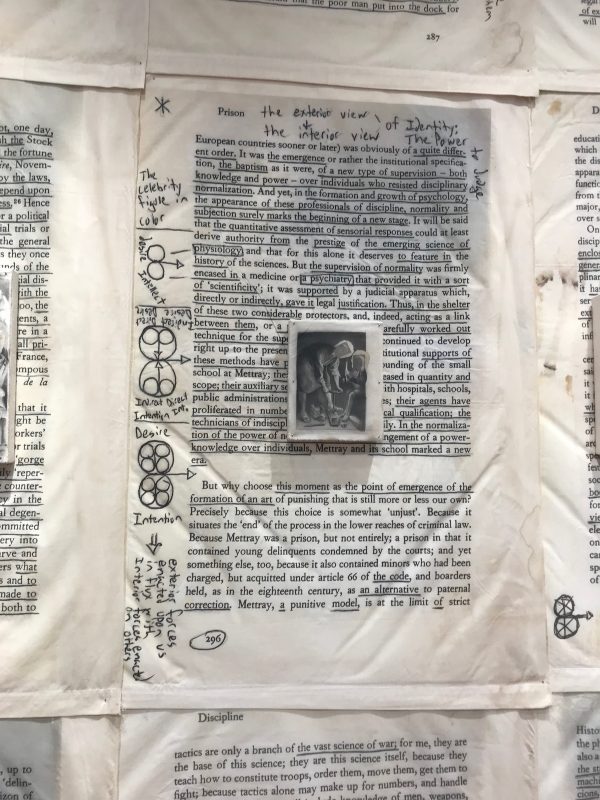 that the poor man put into the dock for
287
Prison
the exterior view
+
the interior view
of Identity:
The Power
to Judge
European countries sooner or later) was obviously of a quite differ-
ent order. It was the emergence or rather the institutional specifica-
tion, the baptism as it were, of a new type of supervision – both
knowledge and power – over individuals who resisted disciplinary
normalization. And yet, in the formation and growth of psychology,
the appearance of these professionals of discipline, normality and
subjection surely marks the beginning of a new stage. It will be said
that the quantitative assessment of sensorial responses could at least
derive authority from the prestige of the emerging science of
physiology and that for this alone it deserves to feature in the
history of the sciences. But the supervision of normality was firmly
encased in a medicine or a psychiatry that provided it with a sort
of 'scientificity'; it was supported by a judicial apparatus which,
directly or indirectly, gave it legal justification. Thus, in the shelter
of these two considerable protectors, and, indeed, acting as a link
between them, or a carefully worked out
technique for the supe continued to develop
right up to the presen titutional supports of
these methods have p ounding of the small
school at Mettray; thei eased in quantity and
scope; their auxiliary se ith hospitals, schools,
public administrations es; their agents have
proliferated in numbe cal qualification; the
technicians of indiscipl ily. In the normaliza-
tion of the power of n ngement of a power-
knowledge over individuals, Mettray and its school marked a new
era.
But why choose this moment as the point of emergence of the
formation of an art of punishing that is still more or less our own?
Precisely because this choice is somewhat 'unjust'. Because it
situates the 'end' of the process in the lower reaches of criminal law.
Because Mettray was a prison, but not entirely; a prison in that it
contained young delinquents condemned by the courts; and yet
something else, too, because it also contained minors who had been
charged, but acquitted under article 66 of the code, and boarders
held, as in the eighteenth century, as an alternative to paternal
correction. Mettray, a punitive model, is at the limit of strict
296
The
celebrity
figure in
color
Desire
Interest
Indirect Direct
Intention
Desire
Intention
exterior forces
enacted upon us
in flux with
Interior forces enacted
on others
ot, one day,
gh the Stock
the fortune
ire, Novem-
by the laws,
epend upon
Hence
or a political
ial trials or
the general
s they once
nds of the
ial dis-
ith the
oo, the
ents, a
re in a
all pri-
France,
ompous
de la
that it
ght be
orkers'
or trials
'gorge
ily 'reper-
e counter-
cy in the
al degen-
ommitted
ery into
arve and
ers what
s and to
made to
both to
, up to
'delin-
izon of
Discipline
tactics are only a branch of the vast science of war; for me, they are
the base of this science; they are this science itself, because they
teach how to constitute troops, order them, move them, get them to
fight; because tactics alone may make up for numbers, and handle
of ex
will
educati
which
the dis
appara
functio
from t
major,
over s
On
discip
enclos
gener
plinar
it has
Histo
the ph
also a
the st
machi
cions,